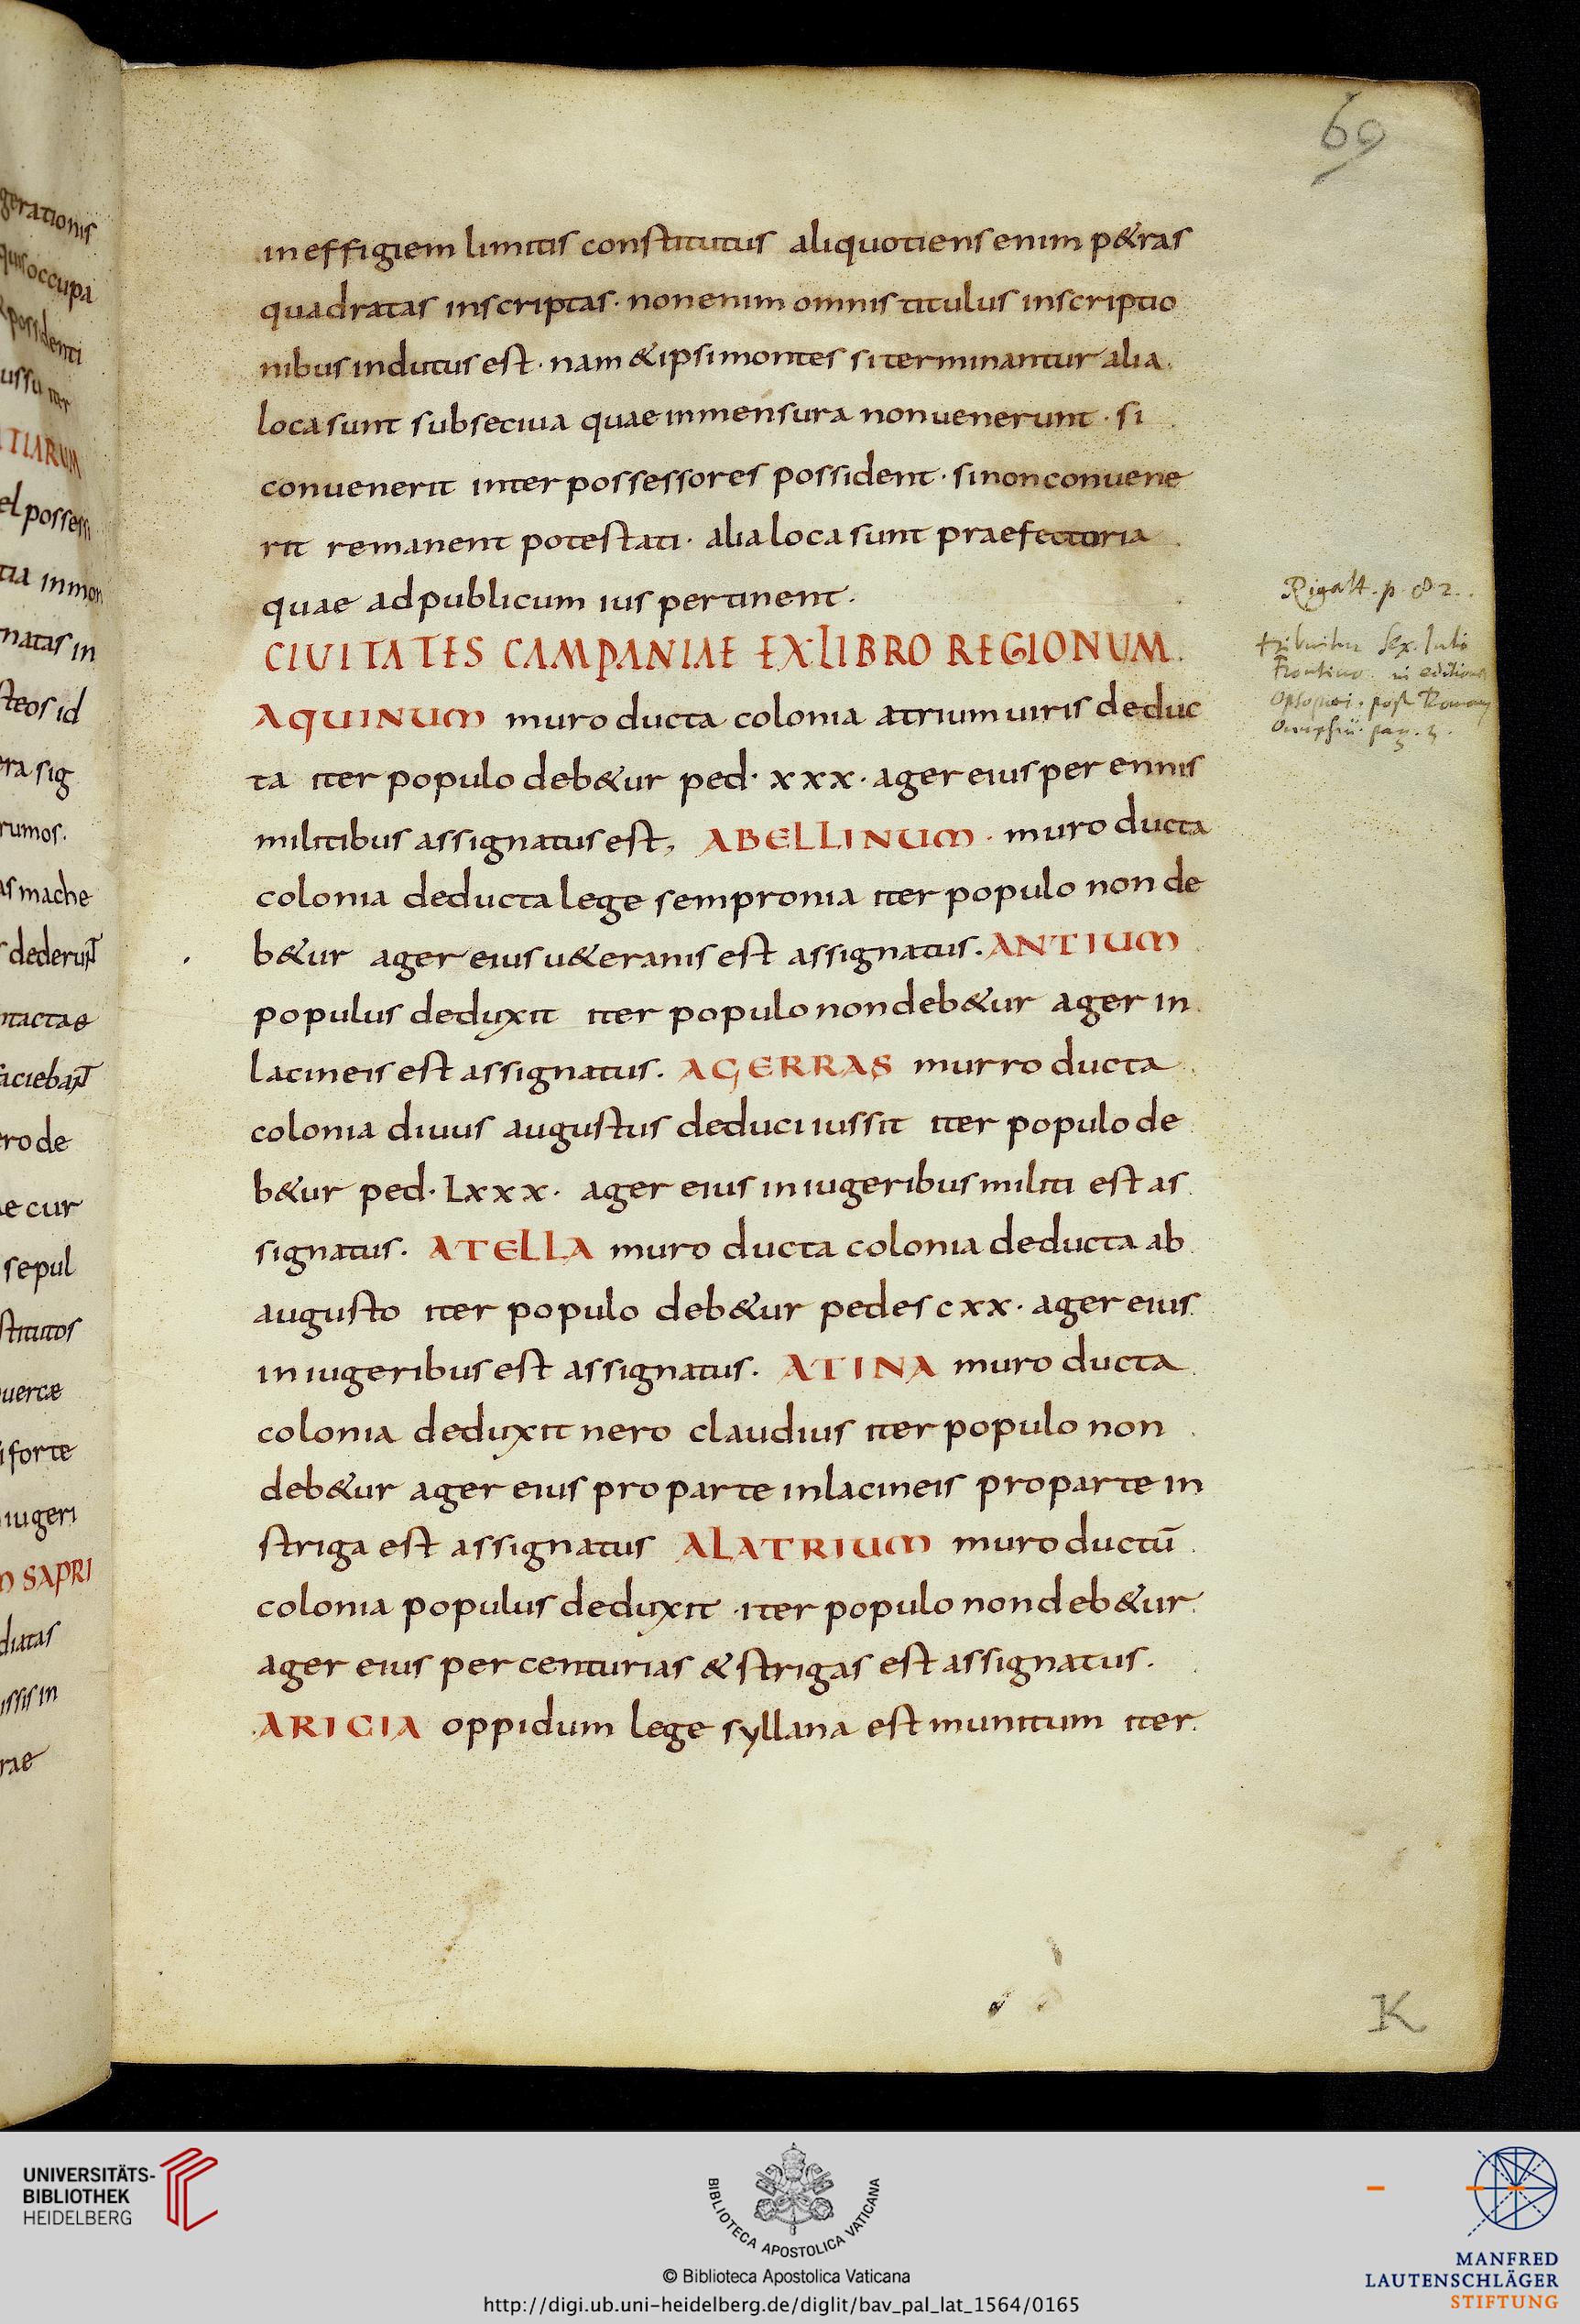 gerationis
quis occupa
possidenti
iussu ter
TIARUM
el possess
tia inmon
natas in
steos id
era sig
rumos.
as mache
dederunt
ntactae
faciebant
ero de
ae cur
sepul
stitutos
uertae
i forte
iugeri
M SAPRI
diatas
issis in
rae
69
in effigiem limitis constitutus aliquotiens enim p&ras
quadratas inscriptas · non enim omnis titulus inscriptio
nibus indutus est · nam & ipsi montes si terminantur alia
loca sunt subseciua quae in mensura non uenerunt · si
conuenerit inter possessores possident · si non conuene
rit remanent potestati · alia loca sunt praefectoria
quae ad publicum ius pertinent.
CIUITATES CAMPANIAE EX LIBRO REGIONUM
AQUINUM muro ducta colonia atrium uiris deduc
ta iter populo deb&ur ped · xxx · ager eius per ennis
militibus assignatus est, ABELLINUM · muro ducta
colonia deducta lege sempronia iter populo non de
b&ur ager eius u&eranis est assignatus. ANTIUM
populus deduxit iter populo non deb&ur ager in
lacineis est assignatus. AGERRAS murro ducta
colonia diuus augustus deduci iussit iter populo de
b&ur ped · Lxxx · ager eius in iugeribus militi est as
signatus. ATELLA muro ducta colonia deducta ab
augusto iter populo deb&ur pedes cxx · ager eius
in iugeribus est assignatus. ATINA muro ducta
colonia deduxit nero claudius iter populo non
deb&ur ager eius pro parte in lacineis pro parte in
striga est assignatus ALATRIUM muro ductū
colonia populus deduxit · iter populo non deb&ur
ager eius per centurias & strigas est assignatus.
ARICIA oppidum lege syllana est munitum iter
Rigalt. p. 82.
tribuitur Sex. Julio
Frontino in editione
Opsopoei. post Roman
Onuphrii pag. 3.
K
UNIVERSITÄTS-
BIBLIOTHEK
HEIDELBERG
BIBLIOTECA APOSTOLICA VATICANA
© Biblioteca Apostolica Vaticana
http://digi.ub.uni-heidelberg.de/diglit/bav_pal_lat_1564/0165
MANFRED
LAUTENSCHLÄGER
STIFTUNG